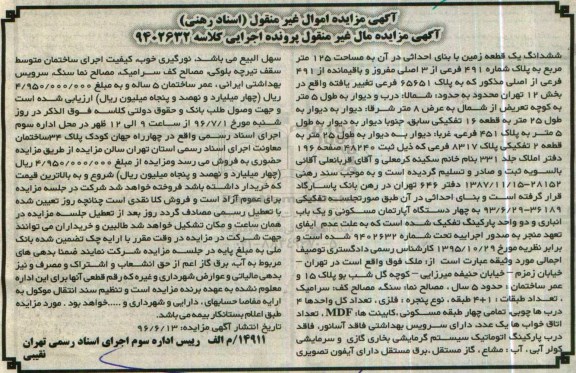 آگهی مزایده اموال غیر منقول (اسناد رهنی)
آگهی مزایده مال غیر منقول پرونده اجرایی کلاسه ۹۴۰۲۶۳۲
ششدانگ یک قطعه زمین با بنای احداثی در آن به مساحت ۱۲۵ متر
مربع به پلاک شماره ۴۹۱ فرعی از ۳ اصلی مفروز و باقیمانده از ۴۹۱
فرعی از اصلی مذکور که به پلاک ۶۵۶۵۱ فرعی تغییر یافته واقع در
بخش ۱۲ تهران محدود به حدود: شمالا: درب و دیوار به طول ۵ متر
به کوچه تعریض از شمال به عرض ۸ متر شرقا: دیوار به دیوار به
طول ۲۵ متر به قطعه ۱۶ تفکیکی سابق، جنوبا دیوار به دیوار به طول
۵ متر به پلاک ۴۵۱ فرعی، غربا: دیوار به دیوار به طول ۲۵ متر به
قطعه ۲ تفکیکی پلاک ۸۳۱۷ فرعی که ذیل ثبت ۴۸۲۴۰ صفحه ۱۹۶
دفتر املاک جلد ۳۳۱ بنام خانم سکینه کرمعلی و آقای قربانعلی آقائی
بالسویه ثبت و صادر و تسلیم گردیده است و به موجب سند رهنی
۲۸۱۵۲-۱۳۸۷/۱۱/۱۵ دفتر ۶۴۶ تهران در رهن بانک پاسارگاد
قرار گرفته است و بنای احداثی در آن طبق صورتجلسه تفکیکی
۳۶۱۸۹-۹۳/۶/۲۹ به چهار دستگاه آپارتمان مسکونی و یک باب
انباری و دو واحد پارکینگ تفکیک شده است که به علت عدم ایفای
تعهد منجر به صدور اجراییه تحت شماره ۹۴۰۲۶۳۲ شده است و
برابر نظریه مورخ ۱۳۹۵/۱۰/۲۹ کارشناس رسمی دادگستری توصیف
اجمالی مورد وثیقه عبارت است از: ملک فوق واقع است در تهران –
خیابان زمزم – خیابان حنیفه میرزایی – کوچه گل شب بو پلاک ۱۵ و
عمر ساختمان: حدود ۵ سال، مصالح نما: سنگ، مصالح کف: سرامیک
، تعداد طبقات: ۱+۴ طبقه، نوع پنجره: فلزی، تعداد کل واحدها ۴
درب ها چوبی، تمامی چهار طبقه مسکونی، کابینت ها: MDF، تعداد
اتاق خواب ها یک عدد، دارای سرویس بهداشتی فاقد آسانور، فاقد
درب پارکینگ اتوماتیک سیستم گرمایشی بخاری گازی و سرمایشی
کولر آبی، آب: مشاع، گاز مستقل، برق مستقل دارای آیفون تصویری
سهل البیع می باشد، نورگیری خوب، کیفیت اجرای ساختمان متوسط
سقف تیرچه بلوکی، مصالح کف سرامیک، مصالح نما سنگ، سرویس
بهداشتی ایرانی، عمر ساختمان ۵ ساله و به مبلغ ۴/۹۵۰/۰۰۰/۰۰۰
ریال (چهار میلیارد و نهصد و پنجاه میلیون ریال) ارزیابی شده است
و جهت وصول طلب بانک و حقوق دولتی کلاسه فوق الذکر در روز
شنبه مورخ ۹۶/۷/۱ از ساعت ۹ الی ۱۲ ظهر در محل اداره سوم
اجرای اسناد رسمی واقع در چهارراه جهان کودک پلاک ۳۴ ساختمان
معاونت اجرای اسناد رسمی استان تهران سالن مزایده از طریق مزایده
حضوری به فروش می رسد ومزایده از مبلغ ۴/۹۵۰/۰۰۰/۰۰۰ ریال
(چهار میلیارد و نهصد و پنجاه میلیون ریال) شروع و به بالاترین قیمت
که خریدار داشته باشد فروخته خواهد شد شرکت در جلسه مزایده
برای عموم آزاد است و فروش کلا نقدی است چنانچه روز تعیین شده
با تعطیل رسمی مصادف گردد روز بعد از تعطیل جلسه مزایده در
همان ساعت و مکان تشکیل خواهد شد طالبین و خریداران می توانند
جهت شرکت در مزایده در وقت مقرر با ارایه چک تضمین شده بانک
ملی به مبلغ پایه در جلسه مزایده شرکت نمایند ضمنا بدهی های
مربوط به آب، برق گاز اعم از حق انشعاب و اشتراک و مصرف و نیز
بدهی مالیاتی و عوارض شهرداری و غیره که رقم قطعی آنها برای این اداره
معلوم نشده به عهده برنده مزایده است و تنظیم سند انتقال موکول به
ارایه مفاصا حسابهای، دارایی و شهرداری و ..... خواهد بود. مورد مزایده
طبق اعلام بستانکار بیمه می باشد.
تاریخ انتشار آگهی مزایده: ۹۶/۶/۱۳
۱۴۹۱۱/م الف رییس اداره سوم اجرای اسناد رسمی تهران
نقیبی